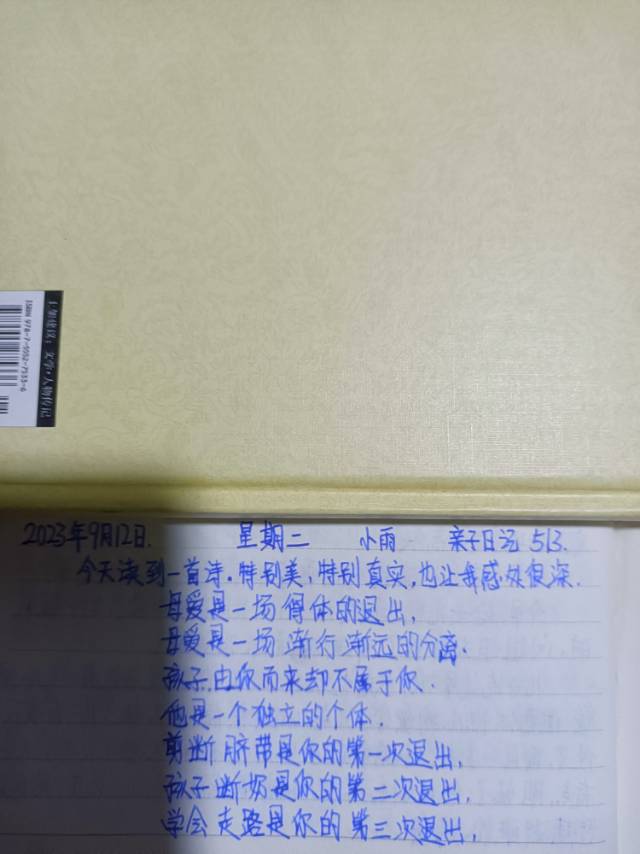 上架建议：文学·人物传记
ISBN 978-7-5552-7533-6
2023年9月12日. 星期二 小雨 亲子日记 513.
今天读到一首诗.特别美,特别真实,也让我感处很深.
母爱是一场得体的退出,
母爱是一场渐行渐远的分离.
孩子由你而来却不属于你.
他是一个独立的个体.
剪断脐带是你的第一次退出,
孩子断奶是你的第二次退出,
学会走路是你的第三次退出,